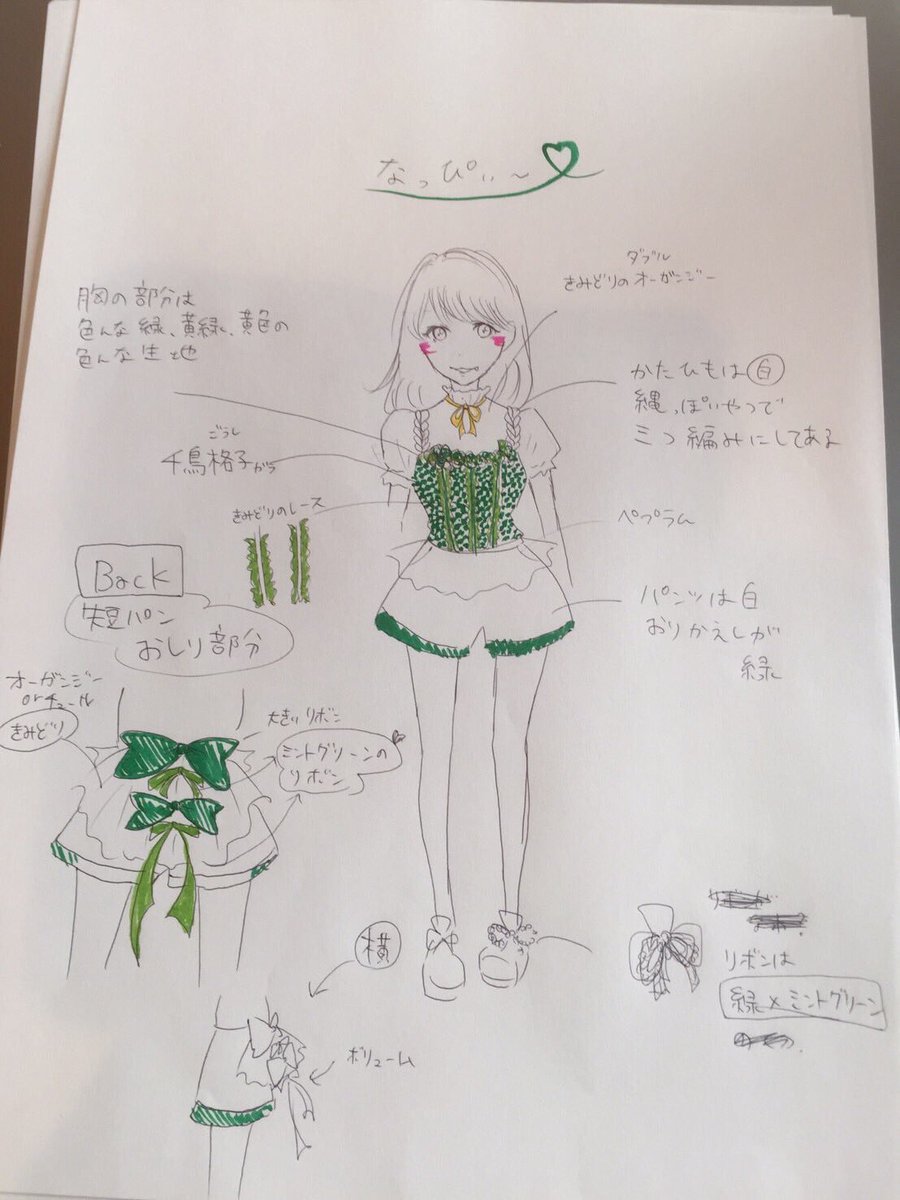 なっぴぃ～
ダブル
きみどりのオーガンジー
胸の部分は
色んな緑、黄緑、黄色の
色んな生地
かたひもは白
縄っぽいやつで
三つ編みにしてある
ごうし
千鳥格子がら
きみどりのレース
ペプラム
Back
短パン
おしり部分
パンツは白
おりかえしが
緑
オーガンジー
orチュール
きみどり
大きいリボン
ミントグリーンの
リボン
横
ボリューム
リボンは
緑×ミントグリーン